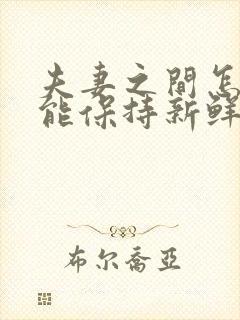 夫妻之間怎
能保持新鮮
布尔喬亞